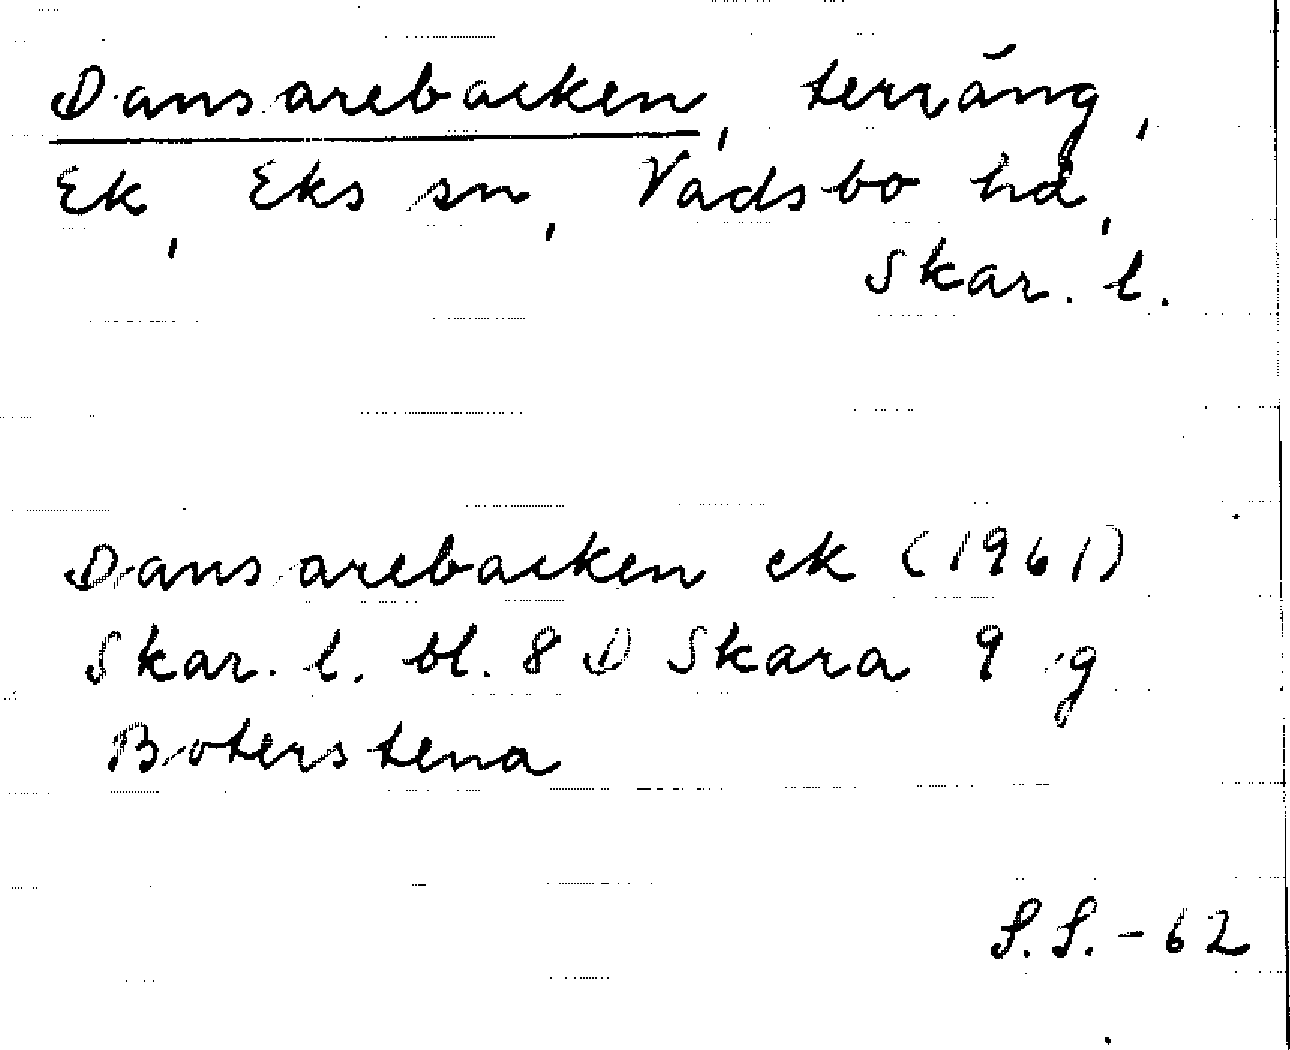 Dansarebacken, terräng,
Ek, Eks sn, Vadsbo hd,
Skar. l.
Dansarebacken ek (1961)
Skar. l. bl. 8 D Skara 9 g
Boterstena
S.S. - 62